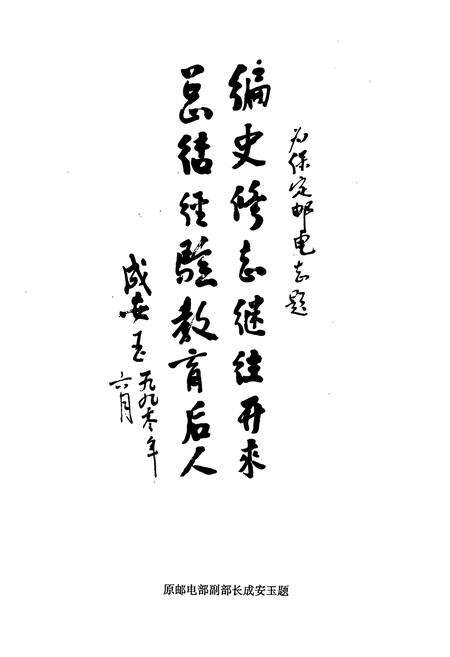 为保定邮电志题
编史修志继往开来
总结经验教育后人
成安玉
一九九零年
六月
原邮电部副部长成安玉题